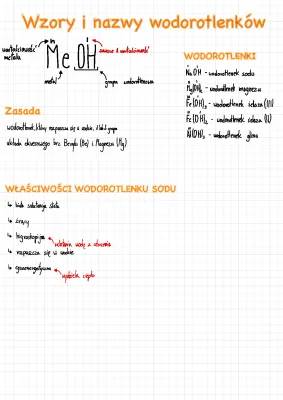 Wzory i nazwy wodorotlenków
wartościowość metalu
n I
Me OH
zawsze I wartościowość
metal
grupa wodorotlenowa
WODOROTLENKI
NaOH - wodorotlenek sodu
Mg(OH)₂ - wodorotlenek magnezu
Fe(OH)₃ - wodorotlenek żelaza (III)
Fe(OH)₂ - wodorotlenek żelaza (II)
Al(OH)₃ - wodorotlenek glinu
Zasada
wodorotlenek, który rozpuszcza się w wodzie, 1 lub 2 grupa
układu okresowego bez Berylu (Be) i Magnezu (Mg)
WŁAŚCIWOŚCI WODOROTLENKU SODU
↳ biała substancja stała
↳ żrący
↳ higroskopijna
wchłania wodę z otoczenia
↳ rozpuszcza się w wodzie
↳ egzoenergetyczna
wydziela ciepło